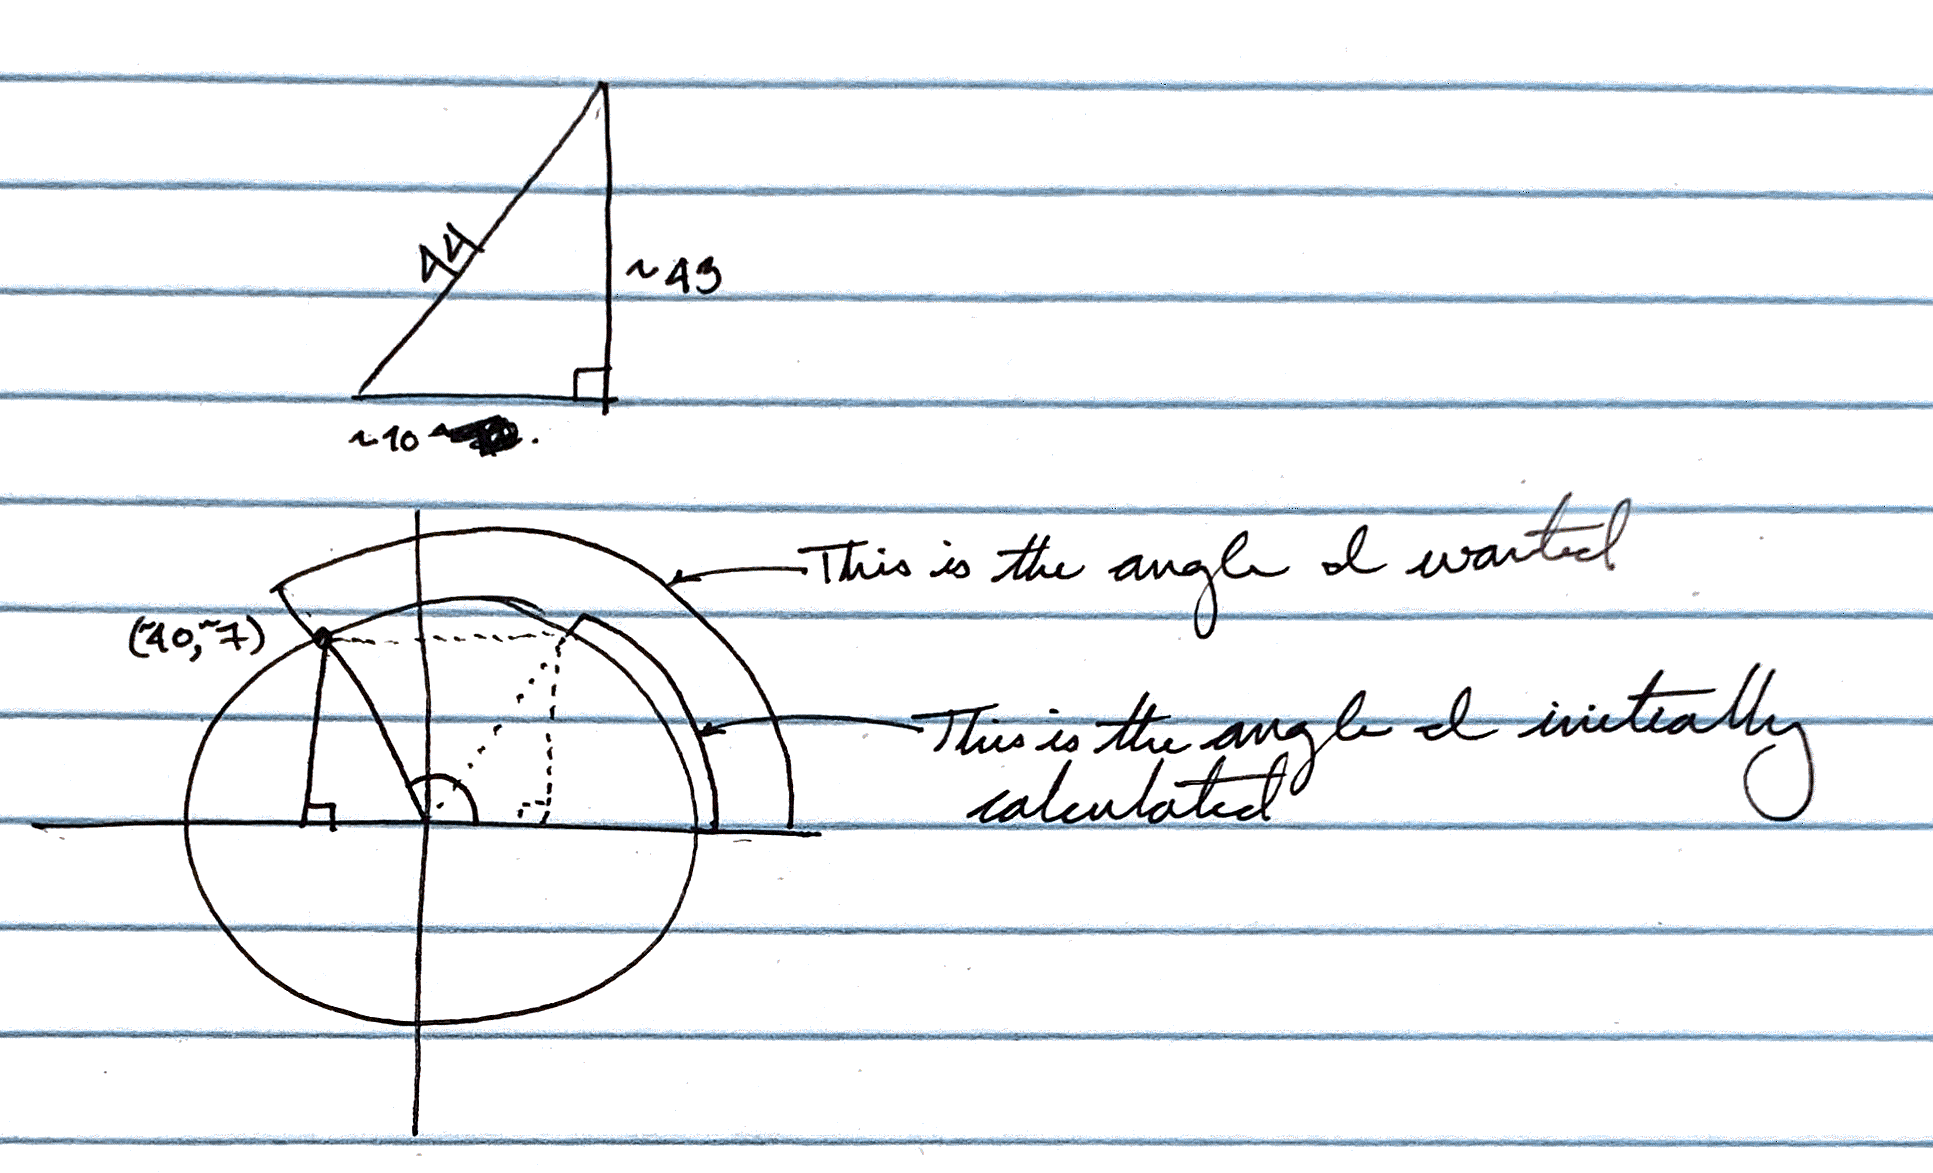 44
~43
~10
This is the angle I wanted
(~40, ~7)
This is the angle I initially
calculated